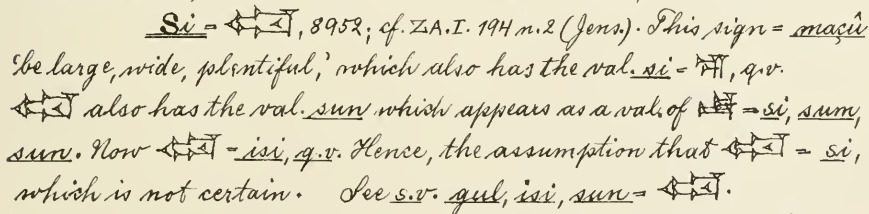 Si = , 8952; cf. Z.A. I. 194 n. 2 (Jens.). This sign = maçû
'be large, wide, plentiful,' which also has the val. si = , q.v.
also has the val. sun which appears as a val. of = si, sum,
sun. Now = isi, q.v. Hence, the assumption that = si,
which is not certain. See s.v. gul, isi, sun = .